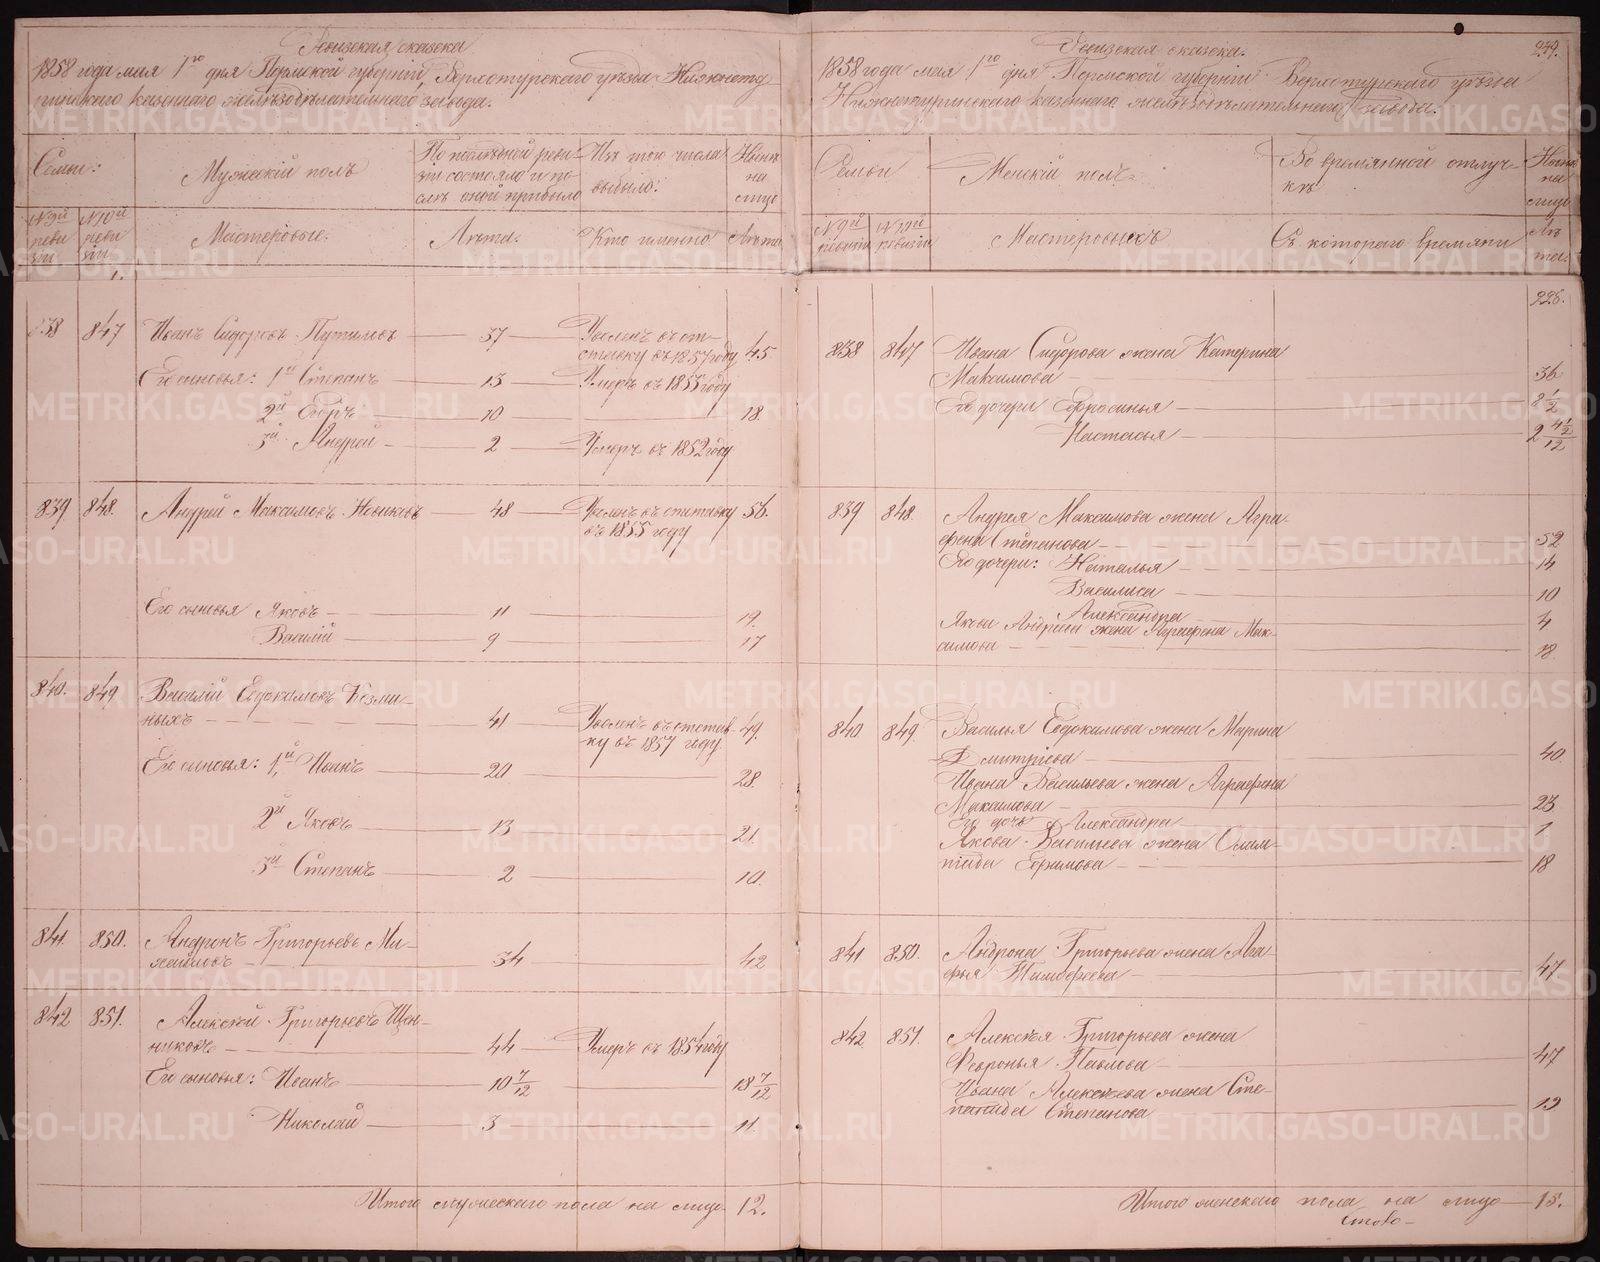 Ревизская сказка
1858 года мая 1го дня Пермской губернии, Верхотурского уезда Нижнету
ринского казеннаго железоделательнаго завода.
Семьи:
Мужескій полъ
По последней реви-
зіи состояло и по-
сле оной прибыло
Изъ того числа
выбыло:
Ныне
на
лицо
№ 9й
реви
зіи
№ 10й
реви
зіи
Мастеровые.
Лѣта.
Кто именно
Лѣта
1.
838 847 Иванъ Сидоровъ Путимовъ — 37 — Уволенъ въ от-
ставку въ 1857 году 45.
Его сыновья: 1й Степанъ — 13 — Умеръ въ 1855 году
2й Егоръ — 10 — 18.
3й Андрей — 2 — Умеръ въ 1852 году
839 848. Андрей Максимовъ Новиковъ — 48 — Уволенъ въ отставку 56.
въ 1855 году
Его сыновья Яковъ — 11 — 19.
Василій — 9 — 17
840. 849 Василій Евдокимовъ Козми-
ныхъ — 41 — Уволенъ въ отстав-
ку въ 1857 году. 49.
Его сыновья: 1й Иванъ — 20 — 28.
2й Яковъ — 13 — 21.
3й Степанъ — 2 — 10.
841. 850. Андронъ Григорьевъ Ми-
хайловъ — 34 — 42
842 851. Алексѣй Григорьевъ Щен-
никовъ — 44 — Умеръ въ 1854 году
Его сыновья: Иванъ — 10 7/12 — 18 7/12
Николай — 3 — 11.
Итого мужескаго пола на лицо 12.
Ревизская сказка.
1858 года мая 1го дня Пермской губерніи Верхотурскаго уезда
Нижнетуринскаго казеннаго железоделательнаго завода.
Семьи
Женскій полъ
Во времянной отлуч-
кѣ
Ныне
на
лицо
№ 9й
ревизіи
№ 10й
ревизіи
Мастеровыхъ
Съ котораго времяни
Лѣ
та.
225.
838 847 Ивана Сидорова жена Катерина
Максимова — 36
Его дочери Ефросинья — 8 1/2
Настасья — 2 4 1/2/12
839 848. Андрея Максимова жена Агра-
фена Степанова — 52
Его дочери: Наталья — 14
Василиса — 10
Александра 4
Якова Андреева жена Аграфена Мак-
симова — 18
840 849. Василья Евдокимова жена Марина
Дмитріева — 40.
Ивана Васильева жена Аграфена
Макаимова — 23
Его дочь Александра — 1
Якова Васильева жена Олим-
піада Ефимова — 18
841 850. Андрона Григорьева жена Ага-
фья Тимофеева — 47
842 851. Алексѣя Григорьева жена
Февронья Павлова — 47
Ивана Алексеева жена Сте-
панида Степанова 19
Итого женскаго пола на лицо — 15.
METRIKI.GASO-URAL.RU